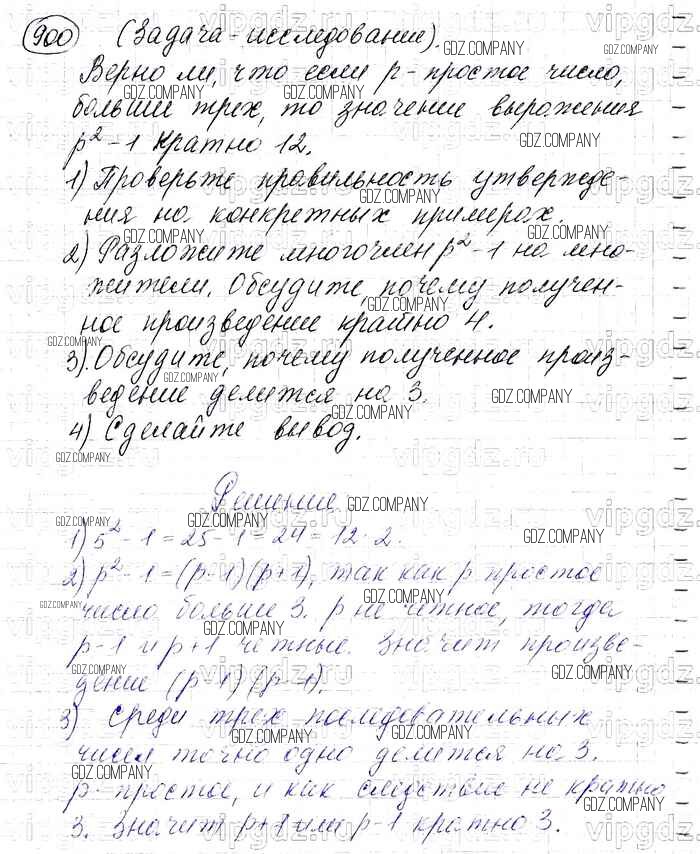 900 (Задача-исследование).
Верно ли, что если p - простое число,
больше трех, то значение выражения
p²-1 кратно 12.
1) Проверьте правильность утвержде-
ния на конкретных примерах.
2) Разложите многочлен p²-1 на мно-
жители. Обсудите, почему получен-
ное произведение кратно 4.
3) Обсудите, почему полученное произ-
ведение делится на 3.
4) Сделайте вывод.
Решение
1) 5²-1=25-1=24=12·2.
2) p²-1=(p-1)(p+1), так как p простое
число больше 3. p не четное, тогда
p-1 и p+1 четные. Значит произве-
дение (p-1)(p-1).
3) Среди трех последовательных
чисел точно одно делится на 3.
p - простое, и как следствие не кратно
3. Значит p+1 или p-1 кратно 3.